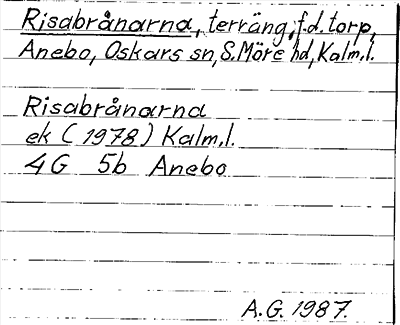 Risabrånarna, terräng, f.d. torp,
Anebo, Oskars sn, S. Möre hd, Kalm.l.
Risabrånarna
ek (1978) Kalm.l.
4G 5b Anebo
A.G. 1987